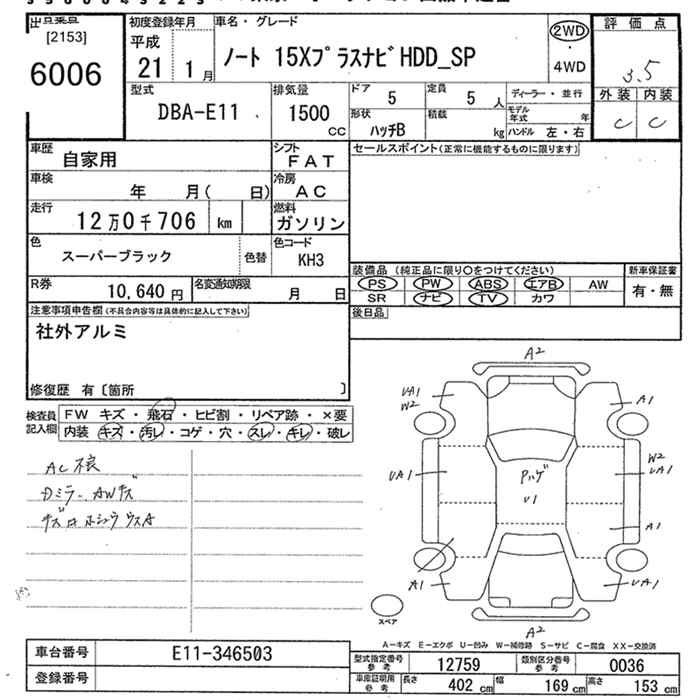 [2153]
6006
初度登録年月
平成
21 1 月
車名・グレード
ノート 15XプラスナビHDD_SP
2WD
4WD
評価点
3.5
外装 内装
C C
型式
DBA-E11
排気量
1500
CC
ドア
5
定員
5 人
形状
ハッチB
積載
kg
ディーラー・並行
モデル年式 年
ハンドル 左・右
車歴
自家用
シフト
FAT
セールスポイント(正常に機能するものに限ります)
車検
年 月( 日)
冷房
AC
走行
12万0千706 km
燃料
ガソリン
色
スーパーブラック
色替
色コード
KH3
R券
10,640 円
名変通知期限
月 日
装備品 (純正品に限り○をつけてください)
新車保証書
PS PW ABS エアB AW
有・無
SR ナビ TV カワ
後日品
注意事項申告欄(不具合内容等は具体的に記入して下さい)
社外アルミ
修復歴 有〔箇所 〕
検査員記入欄
FW キズ・飛石・ヒビ割・リペア跡・×要
内装 キズ・汚レ・コゲ・穴・スレ・キレ・破レ
AC不良
Dミラー、AWキズ
A2
UA1
W2
A1
UA1
Pハゲ
U1
W2
UA1
A1
A1
UA1
A2
スペア
A-キズ E-エクボ U-凹み W-補修跡 S-サビ C-腐食 XX-交換済
車台番号
E11-346503
登録番号
型式指定番号 参考
12759
類別区分番号 参考
0036
車庫証明用 参考
長さ 402 cm 幅 169 cm 高さ 153 cm